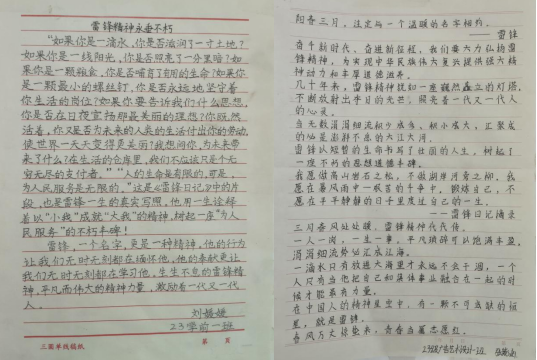 雷锋精神永垂不朽
"如果你是一滴水,你是否滋润了一寸土地?
如果你是一线阳光,你是否照亮了一分黑暗?如
果你是一颗粮食,你是否哺育了有用的生命?如果你
是一颗最小的螺丝钉,你是否永远地坚守着
你生活的岗位?如果你要告诉我们什么思想,
你是否在日夜宣扬那最美丽的理想?你既然
活着,你又是否为未来的人类的生活付出你的劳动,
使世界一天天变得更美丽?我想问你,为未来带
来了什么?在生活的仓库里,我们不应该只是个无
穷无尽的支付者。""人的生命是有限的,可是,
为人民服务是无限的。"这是《雷锋日记》中的片
段,也是雷锋一生的真实写照,他用一生诠释
着以"小我"成就"大我"的精神,树起一座"为人
民服务"的不朽丰碑!
雷锋,一个名字,更是一种精神,他的行为
让我们无时无刻都在缅怀他,他的奉献更让
我们无时无刻都在学习他,生生不息的雷锋精
神,平凡而伟大的精神力量,激励着一代又一代
人。
刘嫒嫒
23学前一班
三圆单线稿纸
第 页
阳春三月,注定与一个温暖的名字相约。
——雷锋
奋斗新时代,奋进新征程,我们要大力弘扬雷
锋精神,为实现中华民族伟大复兴提供强大精
神动力和丰厚道德滋养。
几十年来,雷锋精神犹如一座巍然矗立的灯塔,
不断放射出夺目的光芒,照亮着一代又一代人
的心灵。
当无数涓涓细流积少成多、积小成大,汇聚成
的必是澎湃不息的大江大河。
雷锋以短暂的生命书写了壮丽的人生,树起了
一座不朽的思想道德丰碑。
我愿做高山岩石之松,不做湖岸河旁之柳。我
愿在暴风雨中艰苦的斗争中,锻炼自己,不
愿在平平静静的日子里度过自己的一生。
——雷锋日记摘录
三月春风处处暖,雷锋精神代代传。
一人一岗,一生一事,平凡琐碎可以饱满丰盈,
涓涓细流势必汇成江海。
一滴水只有放进大海里才永远不会干涸,一个
人只有当他把自己和集体事业融合在一起的时
候才能最有力量。
在中国人的精神星空中,有一颗不可或缺的恒
星,就是雷锋。
春风万里绿芽来,青春当属志愿红。
23级广告艺术设计一班